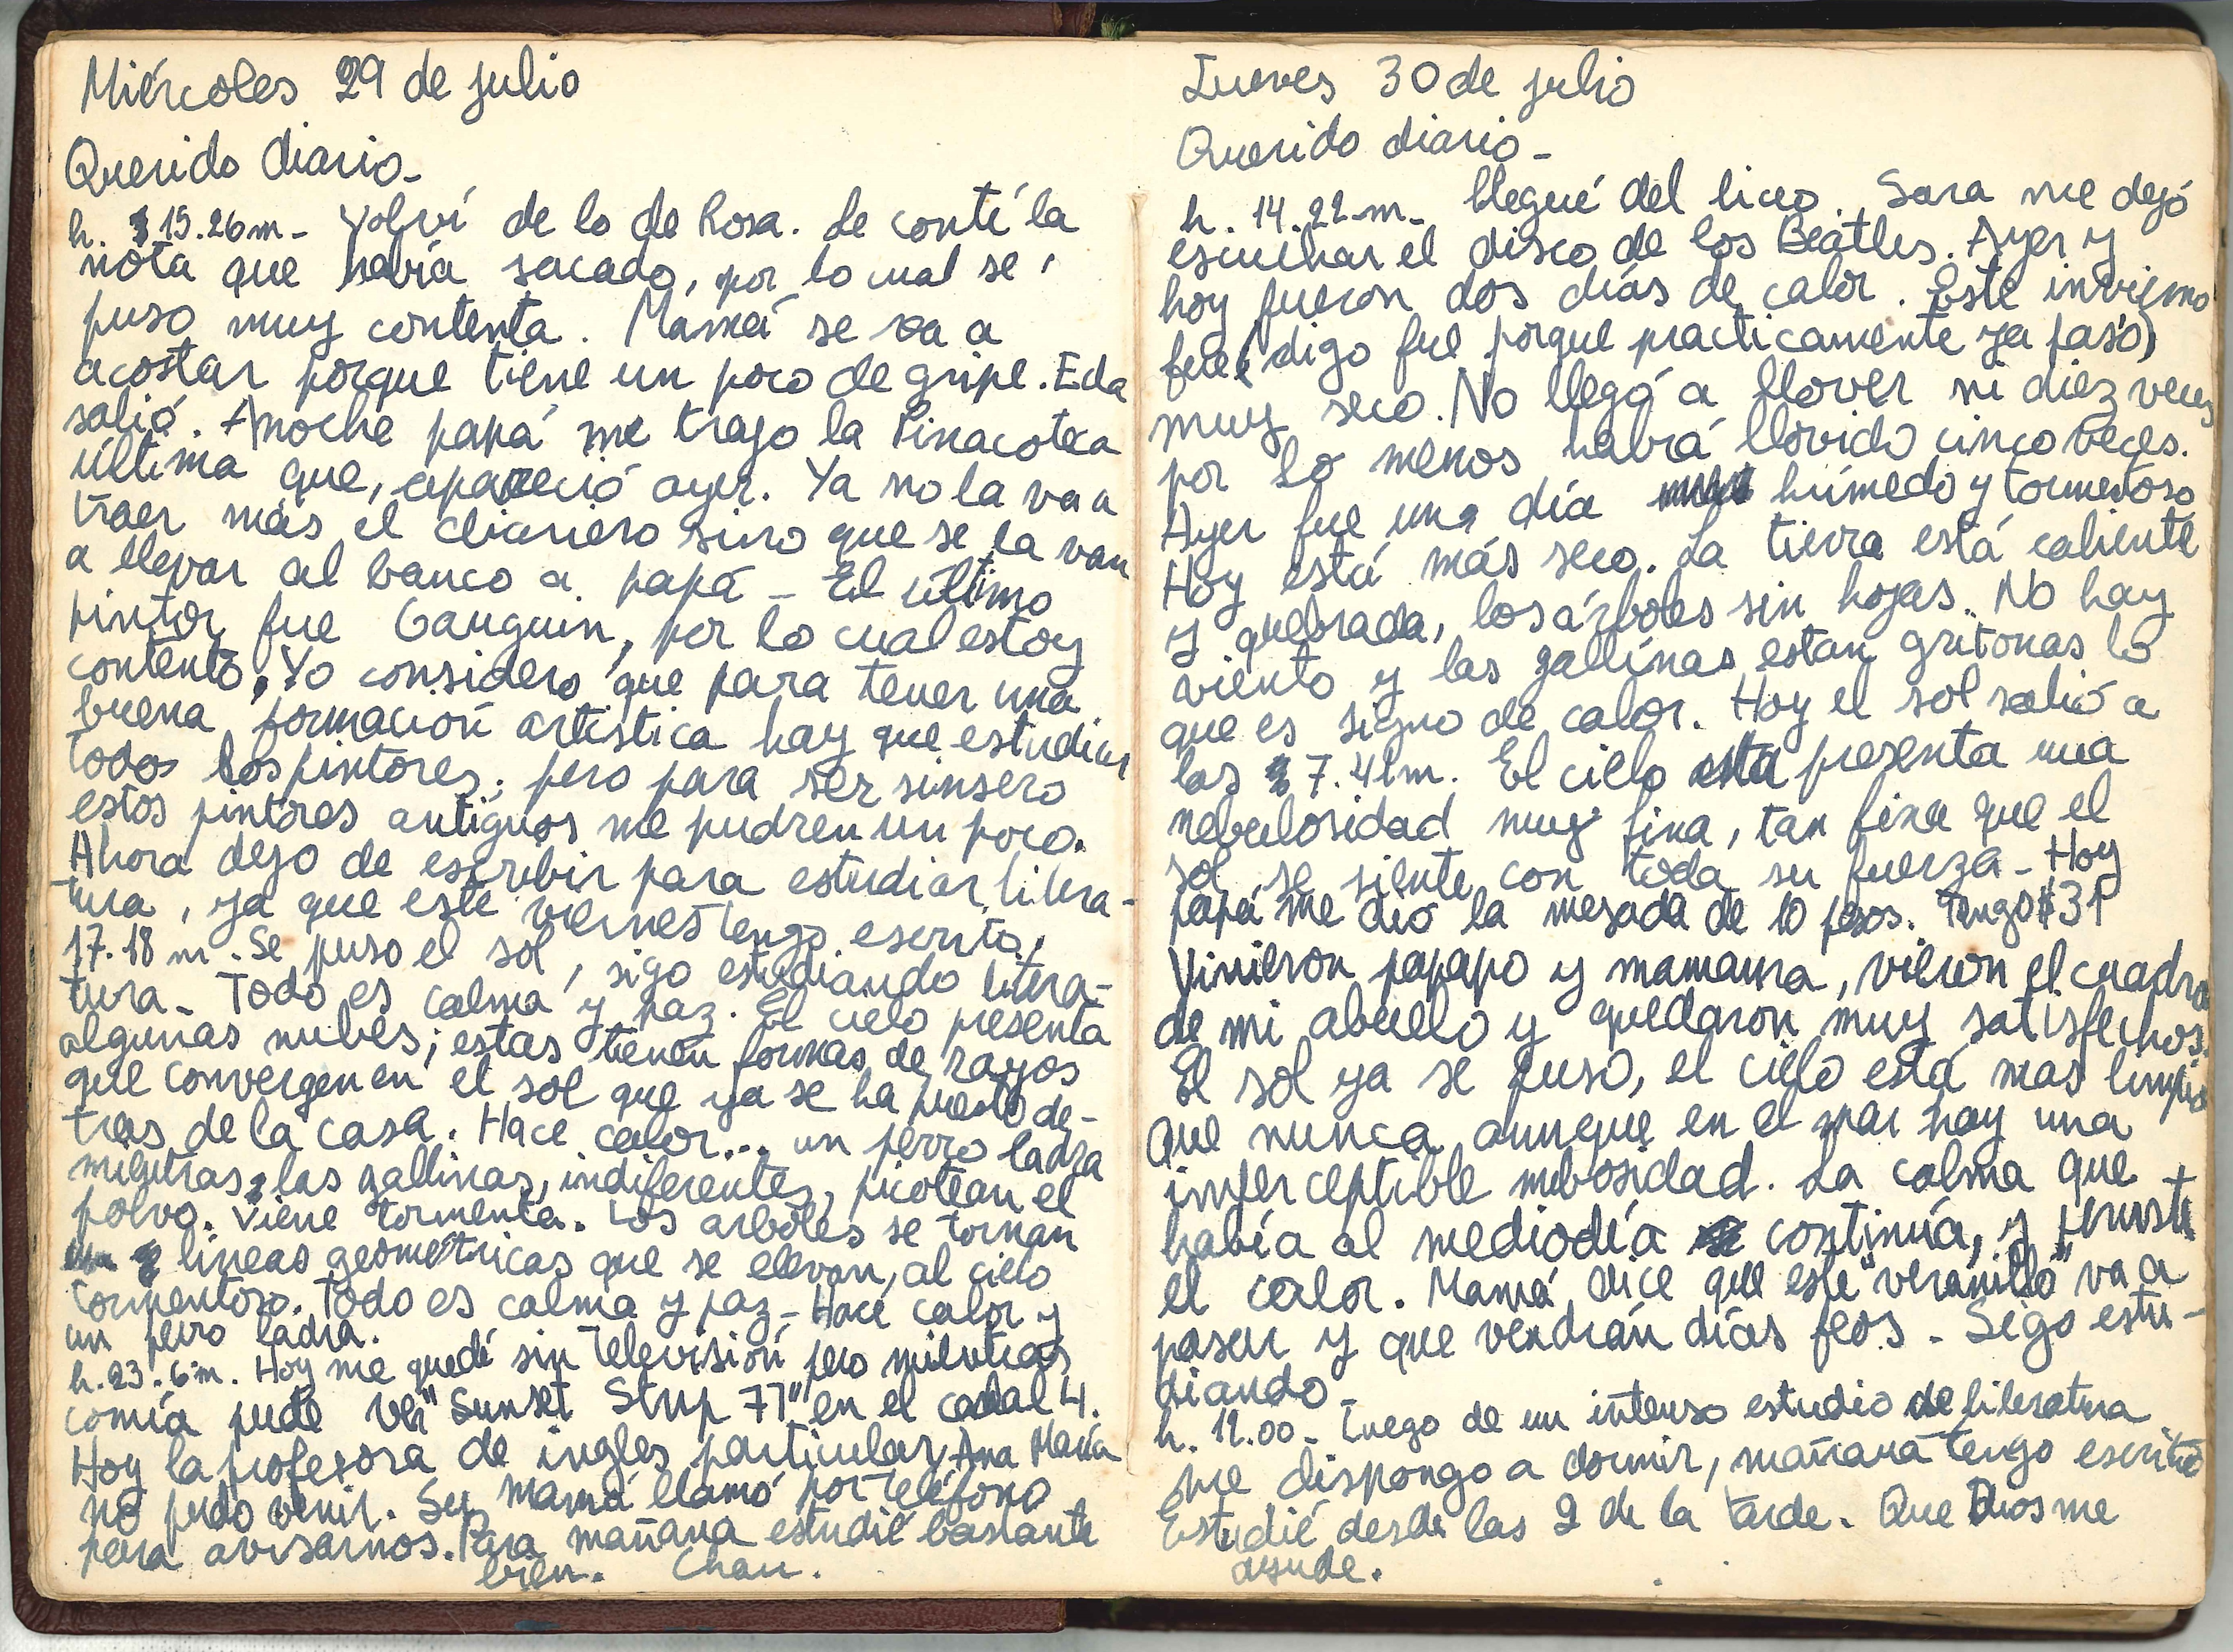 Miércoles 29 de julio
Querido diario_
h. 15.26m_ Volví de lo de Rosa. Le conté la
nota que había sacado, por lo cual se
puso muy contenta. Mamá se va a
acostar porque tiene un poco de gripe. Eda
salió. Anoche papá me trajo la Pinacoteca
última que, apareció ayer. Ya no la va a
traer más el diariero sino que se la van
a llevar al banco a papá _ El último
pintor fue Gauguin, por lo cual estoy
contento. Yo considero que para tener una
buena formación artística hay que estudiar
todos los pintores; pero para ser sinsero
estos pintores antiguos me pudren un poco.
Ahora dejo de escribir para estudiar litera-
tura, ya que este viernes tengo escrito.
17.18 m. Se puso el sol, sigo estudiando litera-
tura_ Todo es calma y paz. El cielo presenta
algunas nubes; estas tienen formas de rayos
que convergen en el sol que ya se ha puesto de-
tras de la casa. Hace calor... un perro ladra
mientras las gallinas, indiferentes, picotean el
polvo. Viene tormenta. Los arboles se tornan
lineas geométricas que se elevan, al cielo
tormentoso. Todo es calma y paz_ Hace calor y
un perro ladra.
h. 23.6m. Hoy me quedé sin televisión pero mientras
comía pude ver "Sunset Strip 77" en el canal 4.
Hoy la profesora de ingles particular, Ana María
no pudo venir. Su mamá llamó por teléfono
para avisarnos. Para mañana estudié bastante
bien. Chau.
Jueves 30 de julio
Querido diario_
h. 14.22m_ llegué del liceo. Sara me dejó
escuchar el disco de los Beatles. Ayer y
hoy fueron dos días de calor. Este invierno
fue (digo fue porque practicamente ya pasó)
muy seco. No llegó a llover ni diez veces
por lo menos habrá llovido cinco veces.
Ayer fue una día húmedo y tormentoso
Hoy está más seco. La tierra está caliente
y quebrada, los árboles sin hojas. No hay
viento y las gallinas estan gritonas lo
que es signo de calor. Hoy el sol salió a
las 7.41m. El cielo presenta una
nebulosidad muy fina, tan fina que el
sol se siente con toda su fuerza_ Hoy
papá me dió la mesada de 10 pesos. Tengo $31
Vinieron papapo y mamama, vieron el cuadro
de mi abuelo y quedaron muy satisfechos.
El sol ya se puso, el cielo está mas limpio
que nunca aunque en el mar hay una
imperceptible nubosidad. La calma que
había al mediodía continúa, y persiste
el calor. Mamá dice que este "veranillo" va a
pasar y que vendrán días feos_ Sigo estu-
diando_
h. 12.00_ Luego de un intenso estudio de literatura
me dispongo a dormir, mañana tengo escrito
Estudié desde las 2 de la tarde. Que Dios me
ayude.